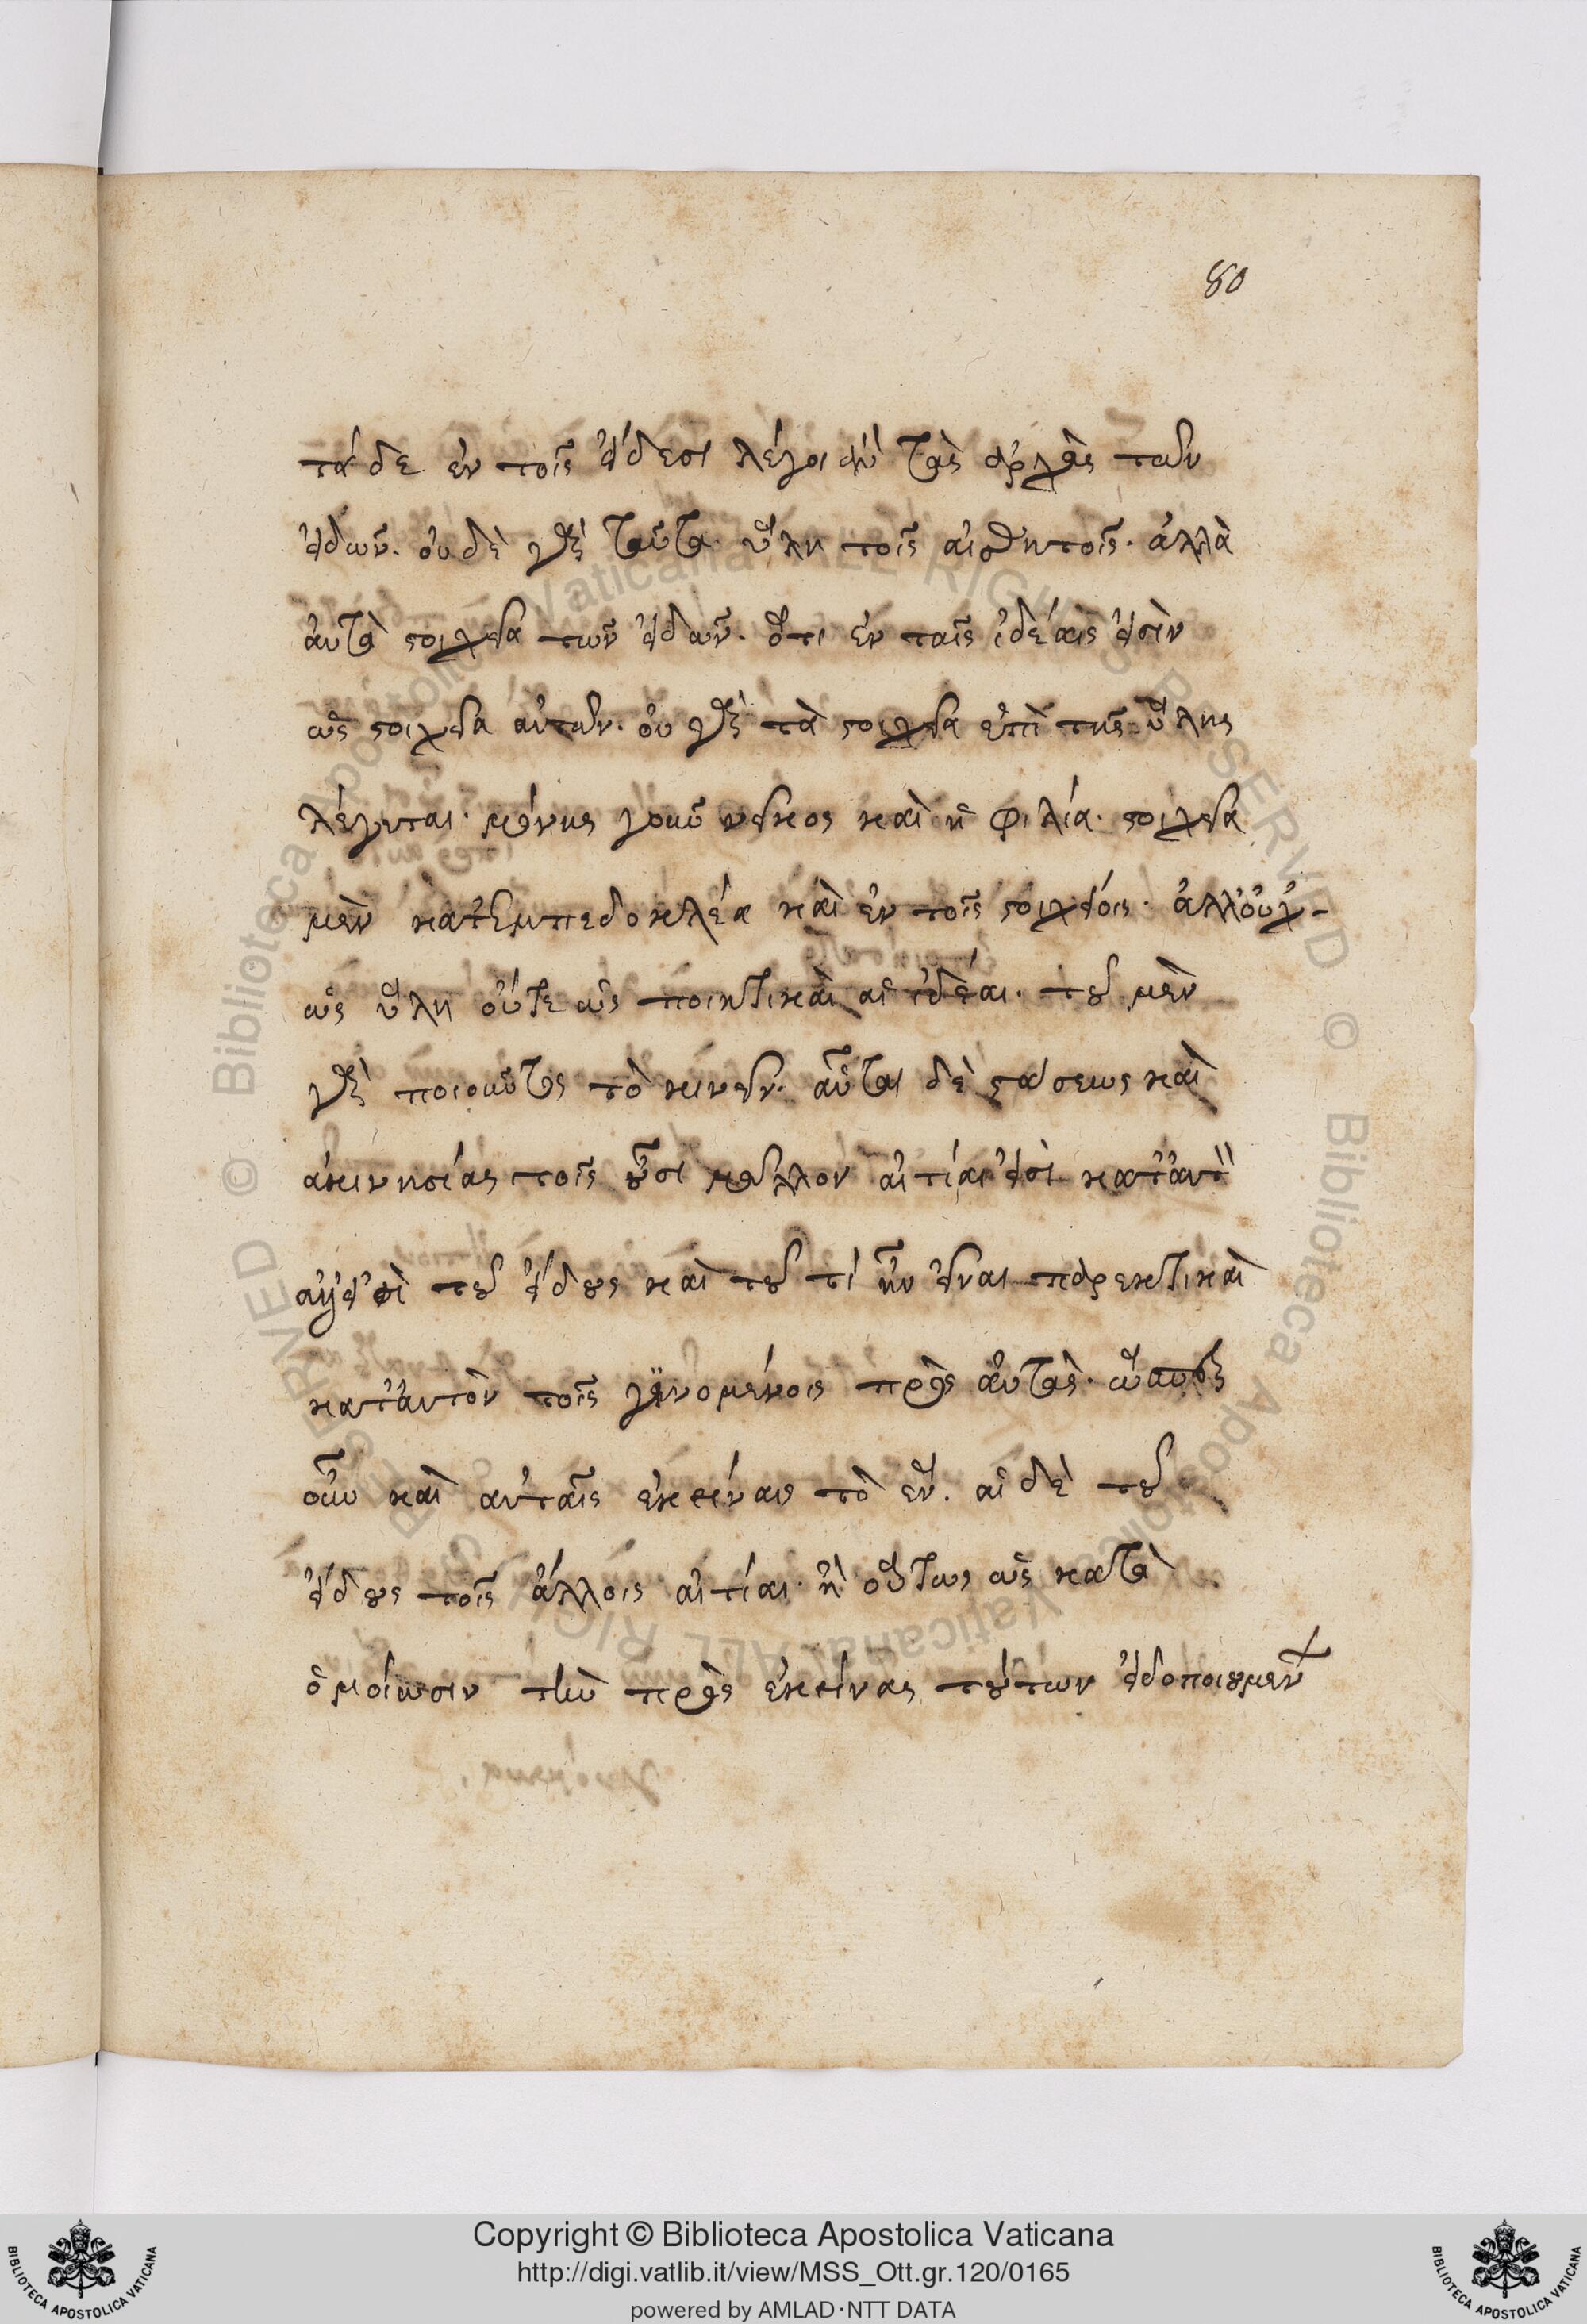 80
τά δε ἐν τοῖς εἴδεσι λέγοι ἂν τὰς ἀρχὰς τῶν
εἰδῶν. οὐδὲ γὰρ ταῦτα ὕλη τοῖς αἰσθητοῖς. ἀλλὰ
αὐτὰ στοιχεῖα τῶν εἰδῶν. ὅτι ἐν ταῖς ἰδέαις εἰσὶν
ὡς στοιχεῖα αὐτῶν. οὐ γὰρ τὰ στοιχεῖα ἐπὶ τῆς ὕλης
λέγεται μόνης γοῦν νεῖκος καὶ ἡ φιλία. στοιχεῖα
μὲν κατ' ἐμπεδοκλέα καὶ ἐν τοῖς στοιχείοις. ἀλλ' οὐχ
ὡς ὕλη οὔτε ὡς ποιητικαὶ αἱ ἰδέαι. τοῦ μὲν
γὰρ ποιοῦντος τὸ κινεῖν. αὗται δὲ στάσεως καὶ
ἀκινησίας τοῖς οὖσι μᾶλλον αἰτίαι εἰσὶ κατ' αὐτ
τοῦ εἴδους καὶ τοῦ τί ἦν εἶναι παρεκτικαὶ
κατ' αὐτὸν τοῖς γινομένοις πρὸς αὐτὰς. ὥσπερ
οὖν καὶ αὐταῖς ἐκείναις τὸ ἕν. αἱ δὲ τοῦ
εἴδους τοῖς ἄλλοις αἰτίαι. ἢ οὕτως ὡς κατὰ
ὁμοίωσιν τὴν πρὸς ἐκείνας τούτων εἰδοποιουμένων
Copyright © Biblioteca Apostolica Vaticana
http://digi.vatlib.it/view/MSS_Ott.gr.120/0165
powered by AMLAD·NTT DATA
BIBLIOTECA APOSTOLICA VATICANA
BIBLIOTECA APOSTOLICA VATICANA